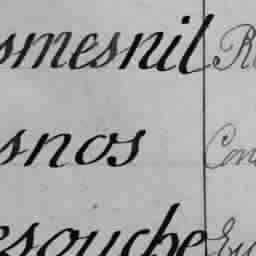 smesnil R
snos Con
esouche Eu